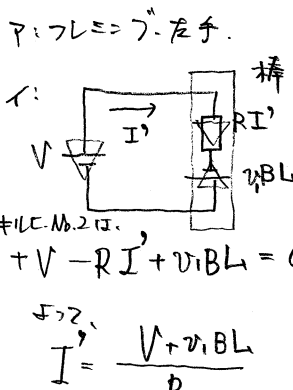 ア:フレミング左手.
イ:
棒
I'
RI'
V
v₁BL
キルヒ.No.2は、
+V-RI'+v₁BL=
よって、
I'=
V+v₁BL